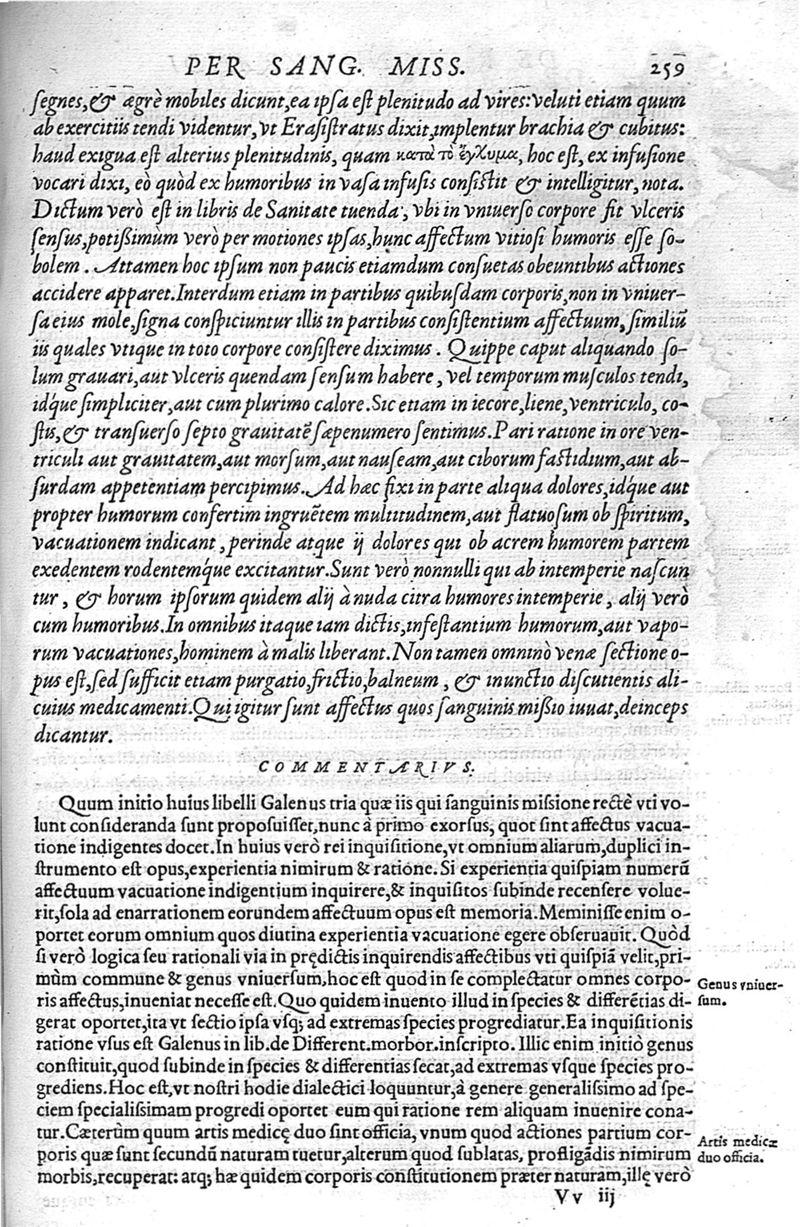 PER SANG. MISS. 259
segnes, & ægrè mobiles dicunt, ea ipsa est plenitudo ad vires: veluti etiam quum
ab exercitiis tendi videntur, vt Erasistratus dixit, implentur brachia & cubitus:
haud exigua est alterius plenitudinis, quam κατὰ τὸ ἔγχυμα, hoc est, ex infusione
vocari dixi, eò quòd ex humoribus in vasa infusis consistit & intelligitur, nota.
Dictum verò est in libris de Sanitate tuenda, vbi in vniuerso corpore fit vlceris
sensus, potißimùm verò per motiones ipsas, hunc affectum vitiosi humoris esse so-
bolem. Attamen hoc ipsum non paucis etiamdum consuetas obeuntibus actiones
accidere apparet. Interdum etiam in partibus quibusdam corporis, non in vniuer-
sa eius mole, signa conspiciuntur illis in partibus consistentium affectuum, similiū
iis quales vtique in toto corpore consistere diximus. Quippe caput aliquando so-
lum grauari, aut vlceris quendam sensum habere, vel temporum musculos tendi,
idq́ue simpliciter, aut cum plurimo calore. Sic etiam in iecore, liene, ventriculo, co-
stis, & transuerso septo grauitatē sæpenumero sentimus. Pari ratione in ore ven-
triculi aut grauitatem, aut morsum, aut nauseam, aut ciborum fastidium, aut ab-
surdam appetentiam percipimus. Ad hæc fixi in parte aliqua dolores, idq́ue aut
propter humorum confertim ingruētem multitudinem, aut flatuosum ob spiritum,
vacuationem indicant, perinde atque ij dolores qui ob acrem humorem partem
exedentem rodentemq́ue excitantur. Sunt verò nonnulli qui ab intemperie nascun
tur, & horum ipsorum quidem alij à nuda citra humores intemperie, alij verò
cum humoribus. In omnibus itaque iam dictis, infestantium humorum, aut vapo-
rum vacuationes, hominem à malis liberant. Non tamen omnino venæ sectione o-
pus est, sed sufficit etiam purgatio, frictio, balneum, & inunctio discutientis ali-
cuius medicamenti. Qui igitur sunt affectus quos sanguinis mißio iuuat, deinceps
dicantur.
COMMENTARIVS.
Quum initio huius libelli Galenus tria quæ iis qui sanguinis missione rectè vti vo-
lunt consideranda sunt proposuisset, nunc à primo exorsus, quot sint affectus vacua-
tione indigentes docet. In huius verò rei inquisitione, vt omnium aliarum, duplici in-
strumento est opus, experientia nimirum & ratione. Si experientia quispiam numerū
affectuum vacuatione indigentium inquirere, & inquisitos subinde recensere volue-
rit, sola ad enarrationem eorundem affectuum opus est memoria. Meminisse enim o-
portet eorum omnium quos diutina experientia vacuatione egere obseruauit. Quòd
si verò logica seu rationali via in prędictis inquirendis affectibus vti quispiā velit, pri-
mùm commune & genus vniuersum, hoc est quod in se complectatur omnes corpo-
ris affectus, inueniat necesse est. Quo quidem inuento illud in species & differētias di-
gerat oportet, ita vt sectio ipsa vsq; ad extremas species progrediatur. Ea inquisitionis
ratione vsus est Galenus in lib. de Different. morbor. inscripto. Illic enim initiò genus
constituit, quod subinde in species & differentias secat, ad extremas vsque species pro-
grediens. Hoc est, vt nostri hodie dialectici loquuntur, à genere generalissimo ad spe-
ciem specialissimam progredi oportet eum qui ratione rem aliquam inuenire cona-
tur. Cæterùm quum artis medicę duo sint officia, vnum quod actiones partium cor-
poris quæ sunt secundū naturam tuetur, alterum quod sublatas, profligādis nimirum
morbis, recuperat: atq; hæ quidem corporis constitutionem præter naturam, illę verò
Vv iij
Genus vniuer-
sum.
Artis medicæ
duo officia.